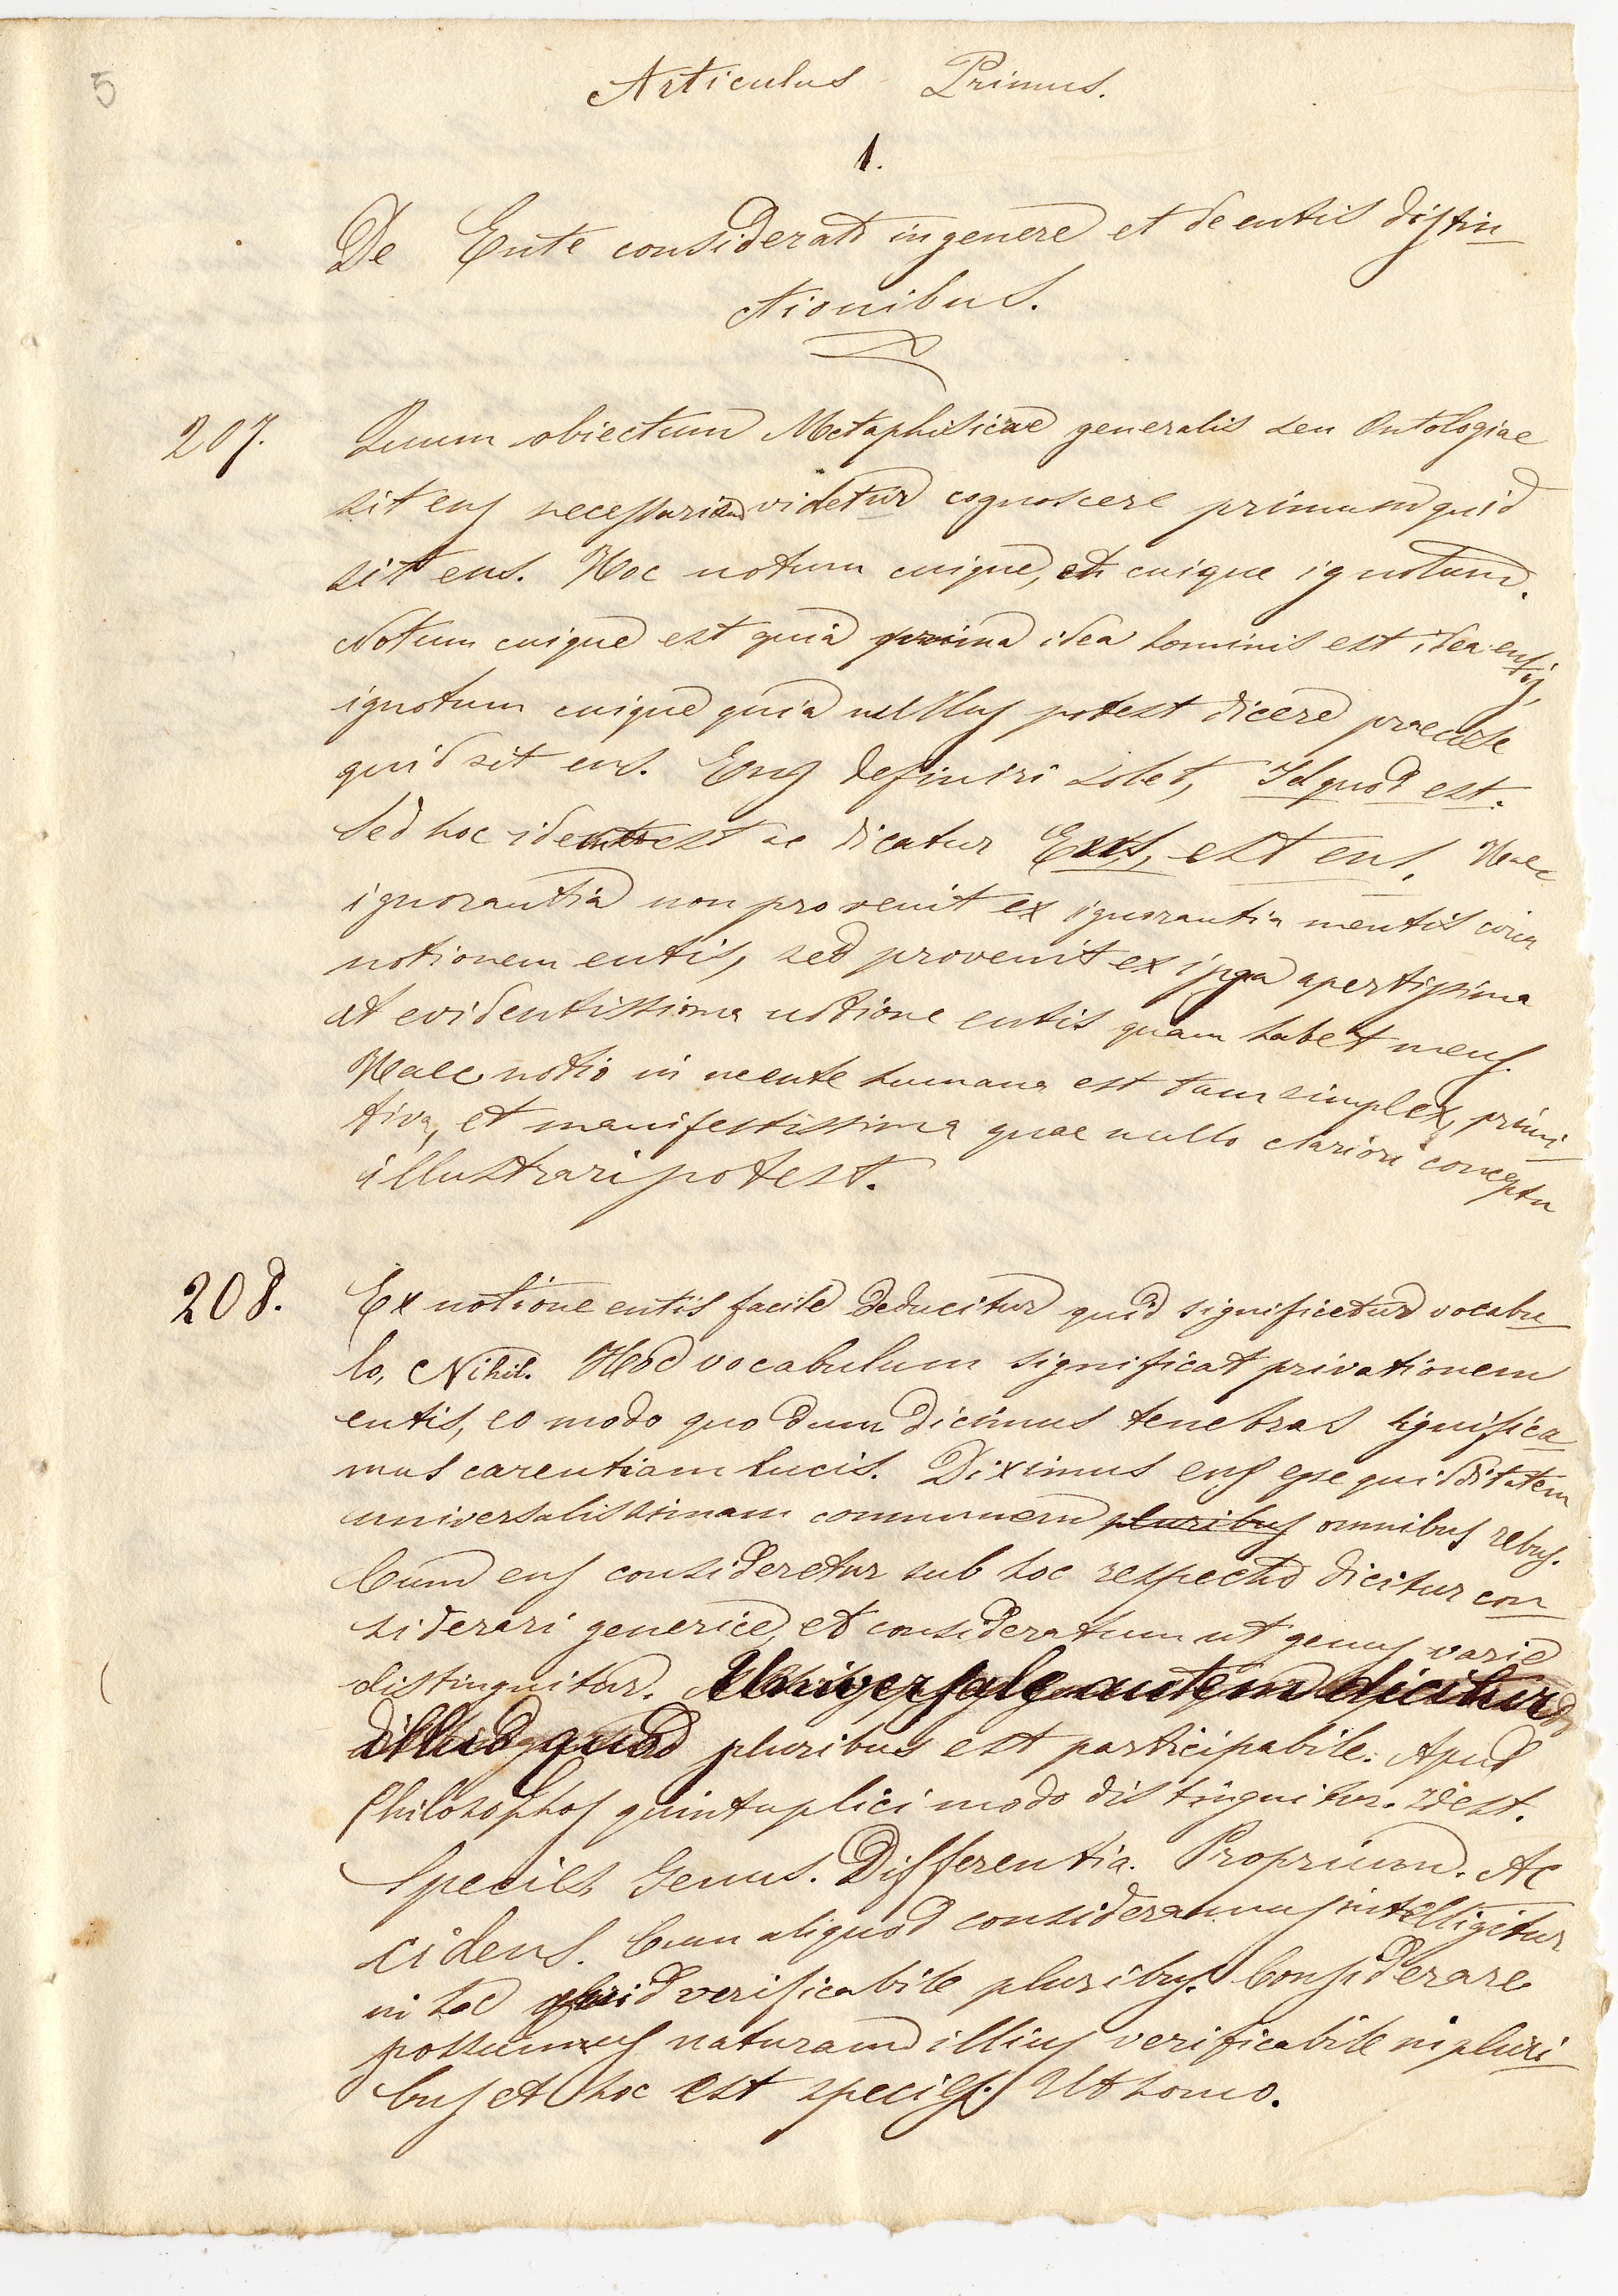 5
Articulus Primus.
1.
De Ente considerato in genere et de entis distin
ctionibus.
207. Quum obiectum Metaphisicae generalis seu Ontologiae
sit ens necessarium videtur cognoscere primum quid
sit ens. Hoc notum cuique, et cuique ignotum.
Notum cuique est quia prima idea hominis est idea entis,
ignotum cuique quia nullus potest dicere praecise
quid sit ens. Ens definiri solet, Id quod est.
Sed hoc idem est ac dicatur Ens, est ens. Haec
ignorantia non provenit ex ignorantia mentis circa
notionem entis, sed provenit ex ipsa apertissima
et evidentissima notione entis quam habet mens.
Haec notio in mente humana est tam simplex, primi
tiva, et manifestissima quae nullo clariori conceptu
illustrari potest.
208. Ex notione entis facile deducitur quid significetur vocabu
lo, Nihil. Hoc vocabulum significat privationem
entis, eo modo quo dum dicimus tenebras significa
mus carentiam lucis. Diximus ens esse quidditatem
universalissimam communem pluribus omnibus rebus.
Cum ens consideretur sub hoc respectu dicitur con
siderari generice, et consideratum ut genus varie
distinguitur. Universale autem dicitur
illud quod pluribus est participabile. Apud
Philosophos quintuplici modo distinguitur. Idest.
Species, Genus. Differentia. Proprium. Ac
cidens. Cum aliquod consideramus intelligitur
in hoc quid verificabile pluribus. Considerare
possumus naturam illius verificabile in pluri
bus et hoc est species. Ut homo.